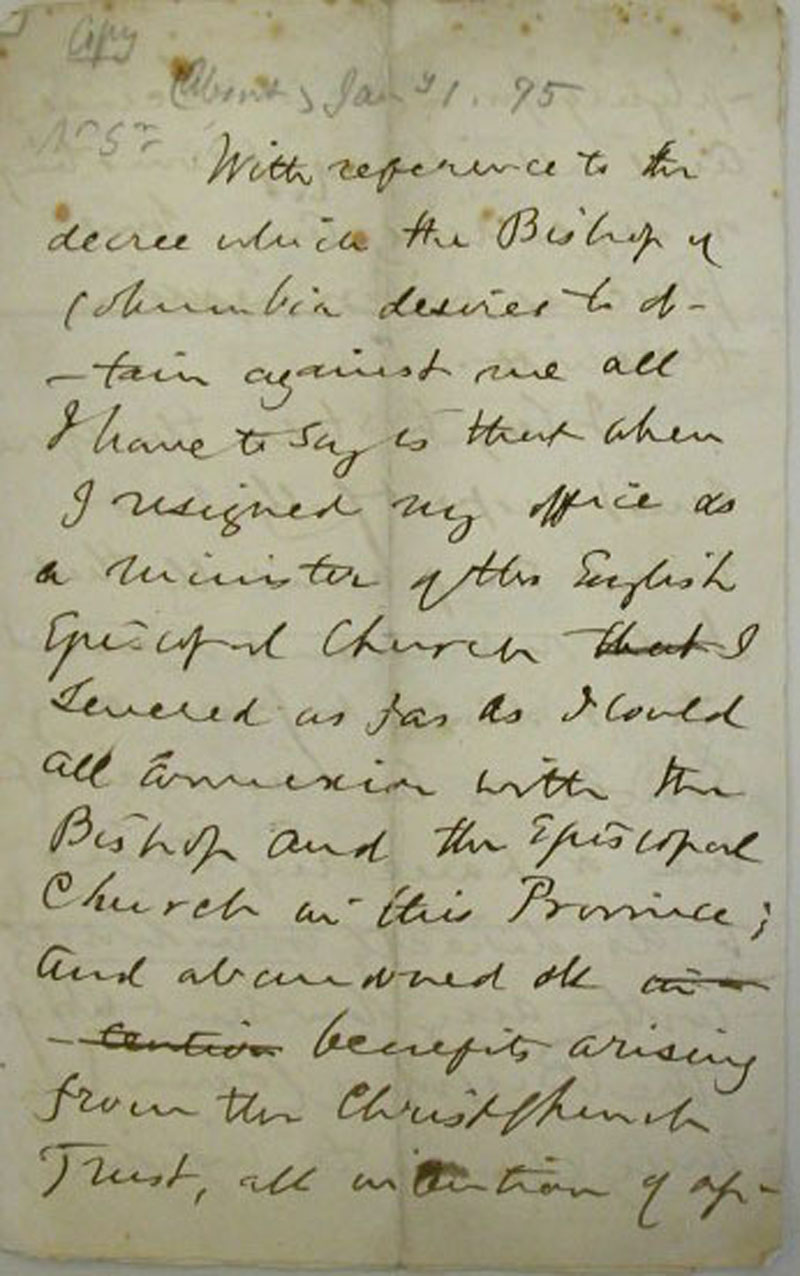 Copy
(About) Jany 1. 75
With reference to the
decree which the Bishop of
Columbia desires to ob-
-tain against me all
I have to say is that when
I resigned my office as
a minister of the English
Episcopal Church that I
severed as far as I could
all connexion with the
Bishop and the Episcopal
Church in this Province;
and abandoned all in-
-tention benefits arising
from the Christ Church
Trust, all intention of ap-